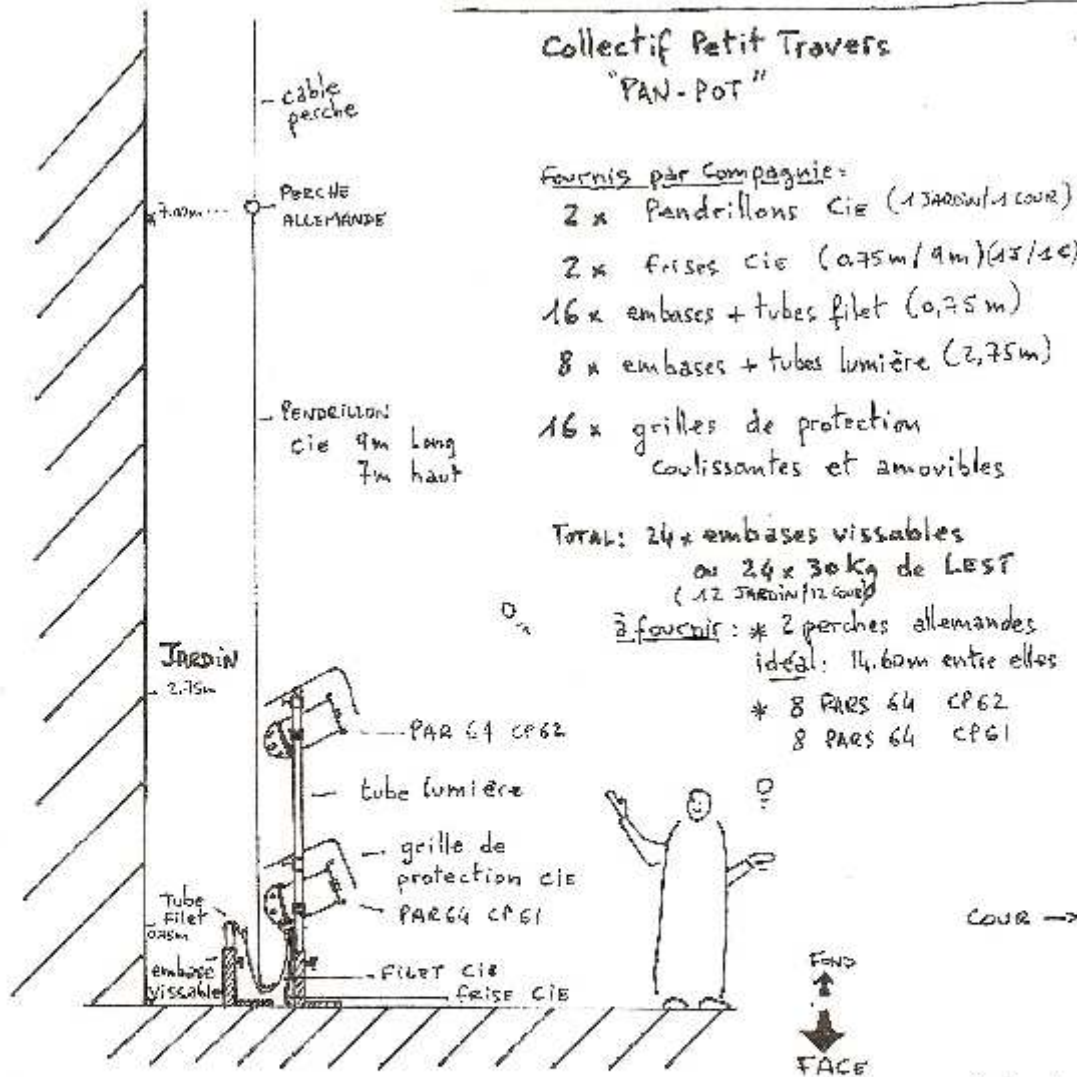 Collectif Petit Travers
"PAN-POT"
Fournis par Compagnie:
2 x Pendrillons Cie (1 JARDIN/1 COUR)
2 x frises cie (0.75m/9m)(1J/1C)
16 x embases + tubes filet (0,75m)
8 x embases + tubes lumière (2,75m)
16 x grilles de protection
coulissantes et amovibles
TOTAL: 24 x embases vissables
ou 24 x 30 Kg de LEST
(12 JARDIN/12 COUR)
à fournir: * 2 perches allemandes
idéal: 14.60m entre elles
* 8 PARS 64 CP62
8 PARS 64 CP61
cable
perche
7.00m
PERCHE
ALLEMANDE
PENDRILLON
Cie 9m Long
7m haut
JARDIN
2.75m
PAR 64 CP62
tube lumière
grille de
protection CIE
PAR64 CP61
Tube
filet
0.75m
embase
vissable
FILET CIE
FRISE CIE
COUR →
FOND
FACE